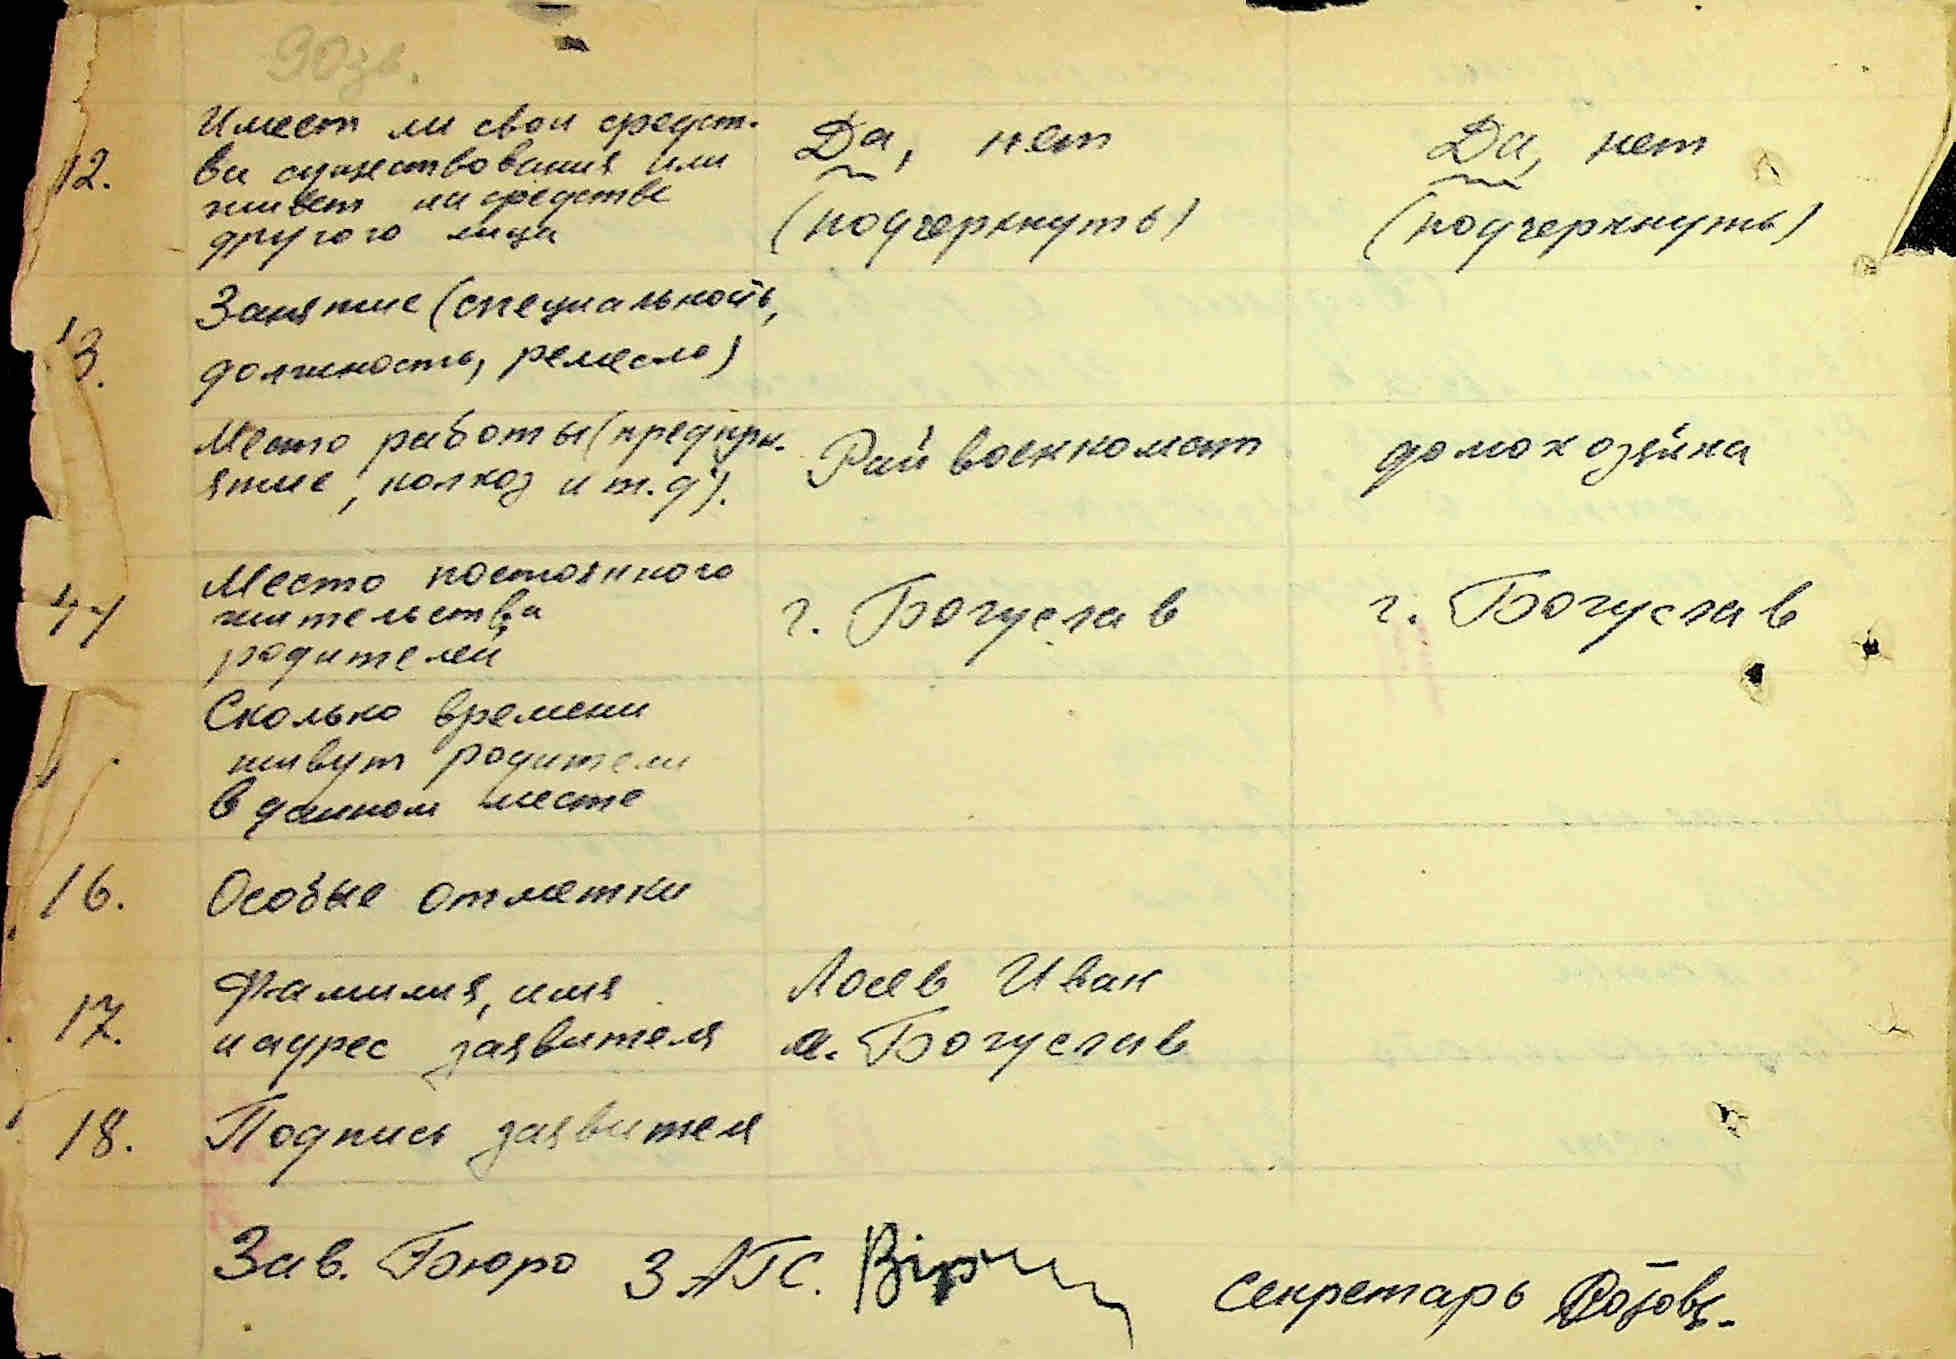 90зв.
12.
Имеет ли свои средст-
ва существования или
живет на средства
другого лица
Да, нет
(подчеркнуть)
Да, нет
(подчеркнуть)
13.
Занятие (специальность,
должность, ремесло)
Место работы (предпри-
ятие, колхоз и т.д).
Рай военкомат
домохозяйка
14
Место постоянного
жительства
родителей
г. Богуслав
г. Богуслав
Сколько времени
живут родители
в данном месте
16.
Особые отметки
17.
Фамилия, имя
и адрес заявителя
Лоев Иван
м. Богуслав
18.
Подпись заявителя
Зав. Бюро ЗАГС.
Секретарь